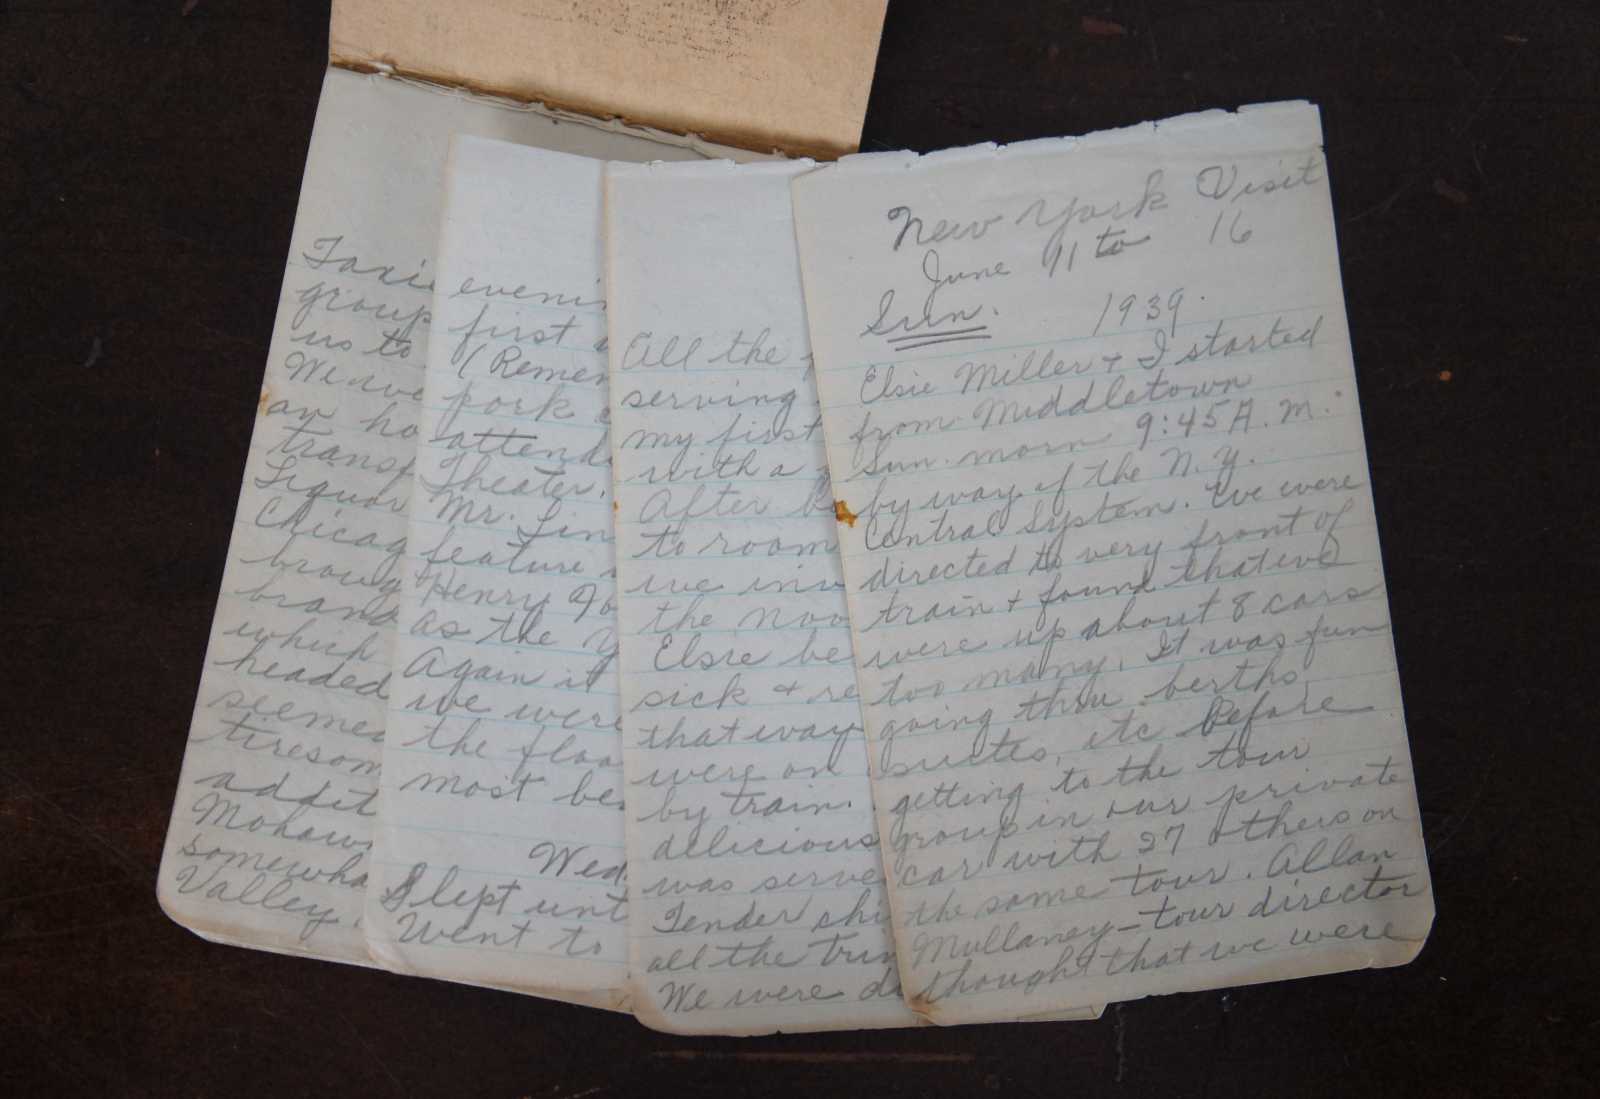 New York Visit
June 11 to 16
Sun. 1939.
Elsie Miller + I started
from Middletown
Sun. morn 9:45 A. M.
by way of the N. Y.
Central System. We were
directed to very front of
train + found that we
were up about 8 cars
too many. It was fun
going thru berths,
suites, etc Before
getting to the tour
group in our private
car with 27 others on
the same tour. Allan
Mullaney - tour director
thought that we were
All the
serving
my first
with a
After
to room
we inv
the
Elsie be
sick + re
that way
were on
by train.
delicious
was serve
Tender chi
all the
We were
eveni
first
(Remem
pork
attend
Theater.
Mr. Lin
feature
Henry Fo
as the Y
Again it
we were
the floo
most be
Wed.
Slept unt
Went to
Taxi
group
us to
We we
an ho
transf
Liquor
Chicag
broug
brand
which
headed
seemed
tiresom
addit
Mohaw
somewha
Valley.